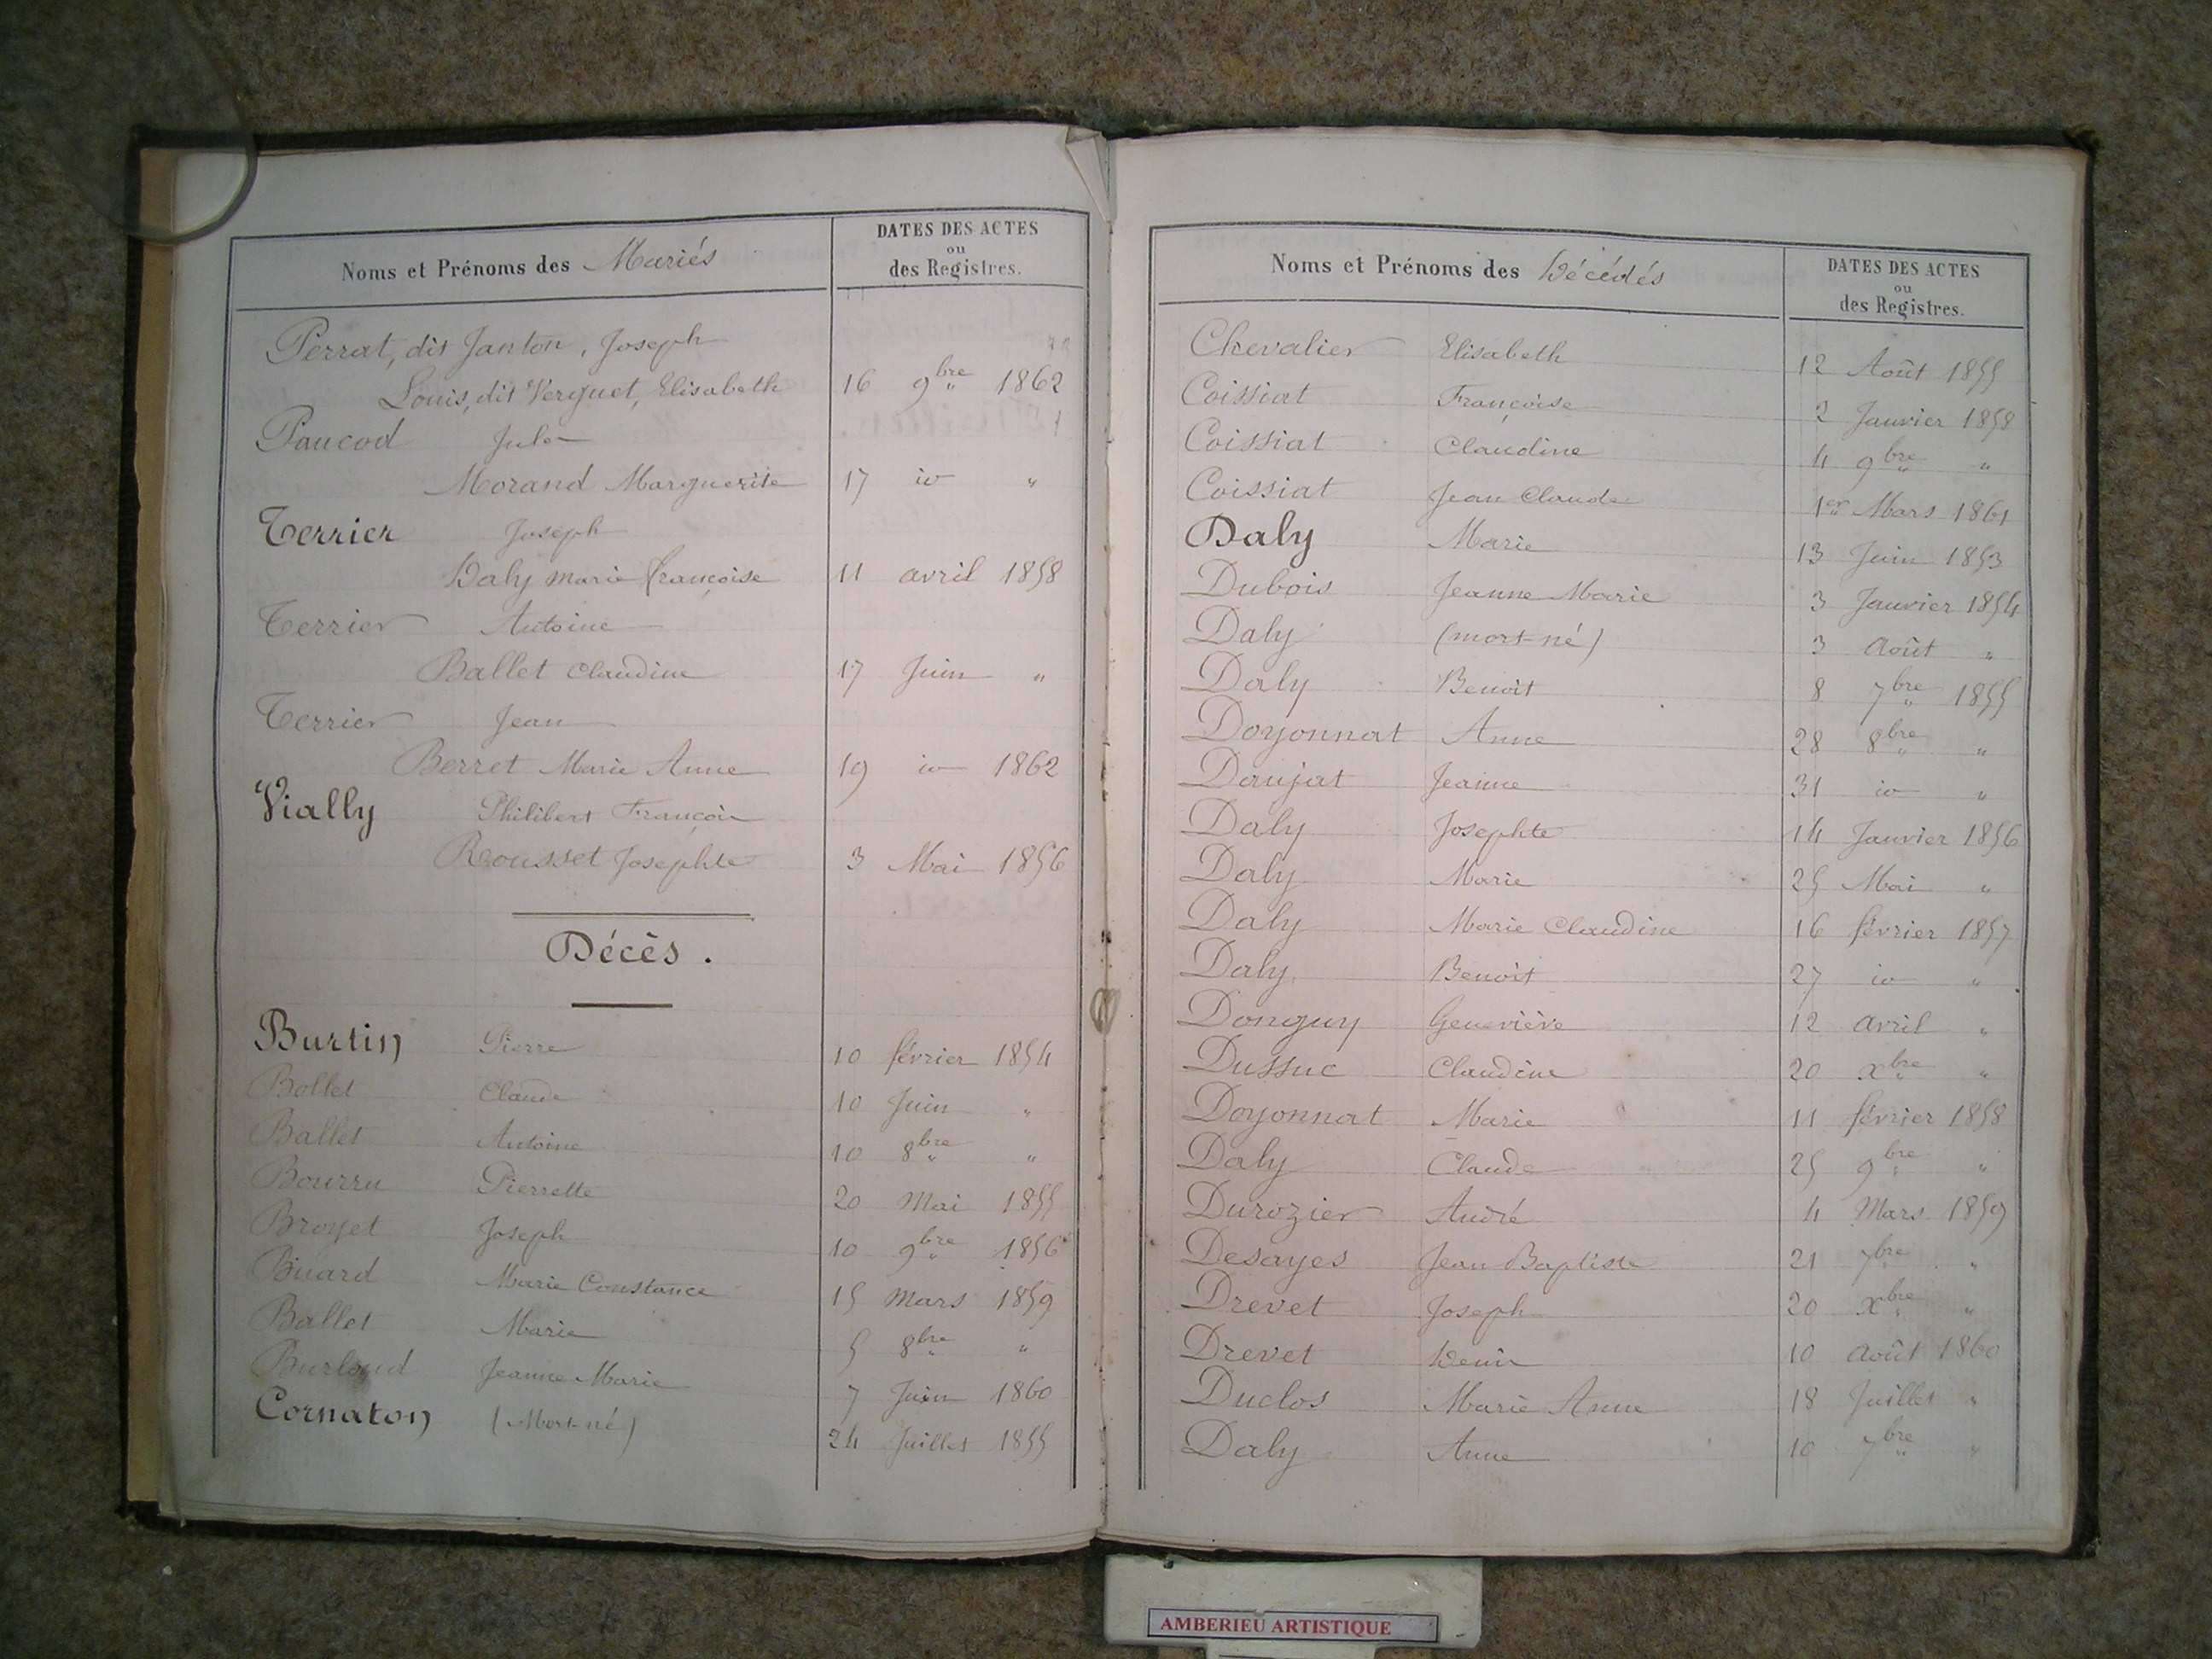 Noms et Prénoms des Mariés
DATES DES ACTES
ou
des Registres.
Perrat, dit Janton, Joseph
Louis, dit Verguet, Elisabeth 16 9bre 1862
Paucod Jules
Morand Marguerite 17 io "
Terrier Joseph
Daly Marie françoise 11 avril 1858
Terrier Antoine
Ballet Claudine 17 Juin "
Terrier Jean
Berret Marie Anne 19 io 1862
Vially Philibert François
Rousset Josephte 3 Mai 1856
Décès.
Burtin Pierre 10 février 1854
Ballet Claude 10 Juin "
Ballet Antoine 10 8bre "
Bourru Pierrette 20 Mai 1855
Broyet Joseph 10 9bre 1856
Buard Marie Constance 15 Mars 1859
Ballet Marie 5 8bre "
Burloud Jeanne Marie 7 Juin 1860
Cornaton (Mort-né) 24 Juillet 1855
Noms et Prénoms des Décédés
DATES DES ACTES
ou
des Registres.
Chevalier Elisabeth 12 Août 1855
Coissiat Françoise 2 Janvier 1858
Coissiat Claudine 4 9bre "
Coissiat Jean Claude 1er Mars 1861
Daly Marie 13 Juin 1853
Dubois Jeanne Marie 3 Janvier 1854
Daly (mort-né) 3 Août "
Daly Benoit 8 7bre 1855
Doyonnat Anne 28 8bre "
Daujat Jeanne 31 io "
Daly Josephte 14 Janvier 1856
Daly Marie 25 Mai "
Daly Marie Claudine 16 février 1857
Daly Benoit 27 io "
Donguy Geneviève 12 avril "
Dussuc Claudine 20 xbre "
Doyonnat Marie 11 février 1858
Daly Claude 25 9bre "
Durozier André 4 Mars 1859
Desayes Jean Baptiste 21 7bre "
Drevet Joseph 20 xbre "
Drevet Denis 10 Août 1860
Duclos Marie Anne 18 Juillet "
Daly Anne 10 7bre "
AMBERIEU ARTISTIQUE